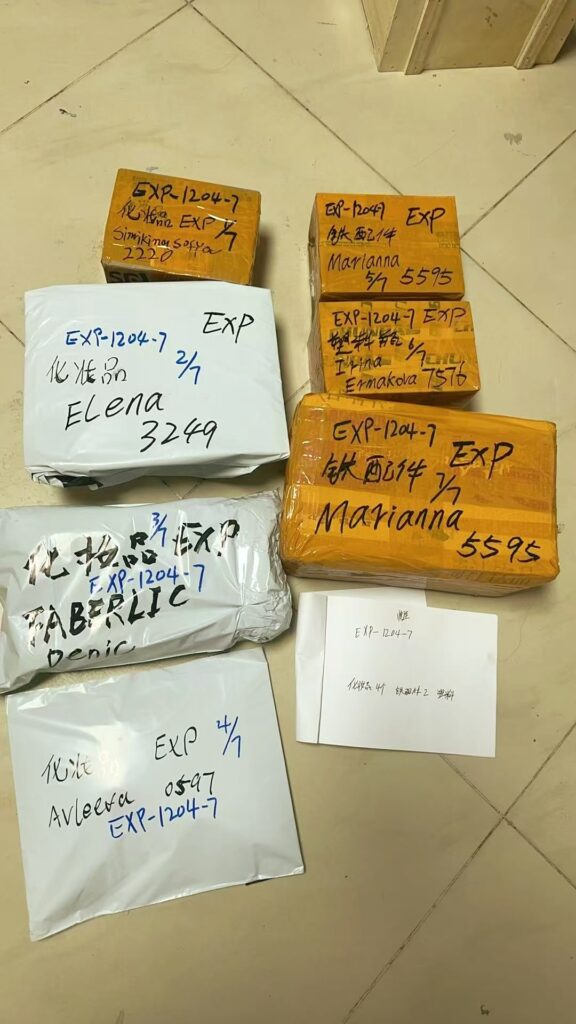 EXP-1204-7
化妆品 EXP 1/7
Simikina Sofya
2220
EXP-1204-7 EXP
化妆品 2/7
Elena
3249
3/7
化妆品 EXP
EXP-1204-7
FABERLIC
Denic
化妆品 EXP 4/7
Avleeva 0597
EXP-1204-7
EXP-1204-7 EXP
铁配件
Marianna
5/7 5595
EXP-1204-7 EXP
塑料瓶 6/7
Irina
Ermakova 7576
EXP-1204-7
铁配件 EXP
7/7
Marianna
5595
EXP-1204-7
化妆品4个 铁配件2 塑料